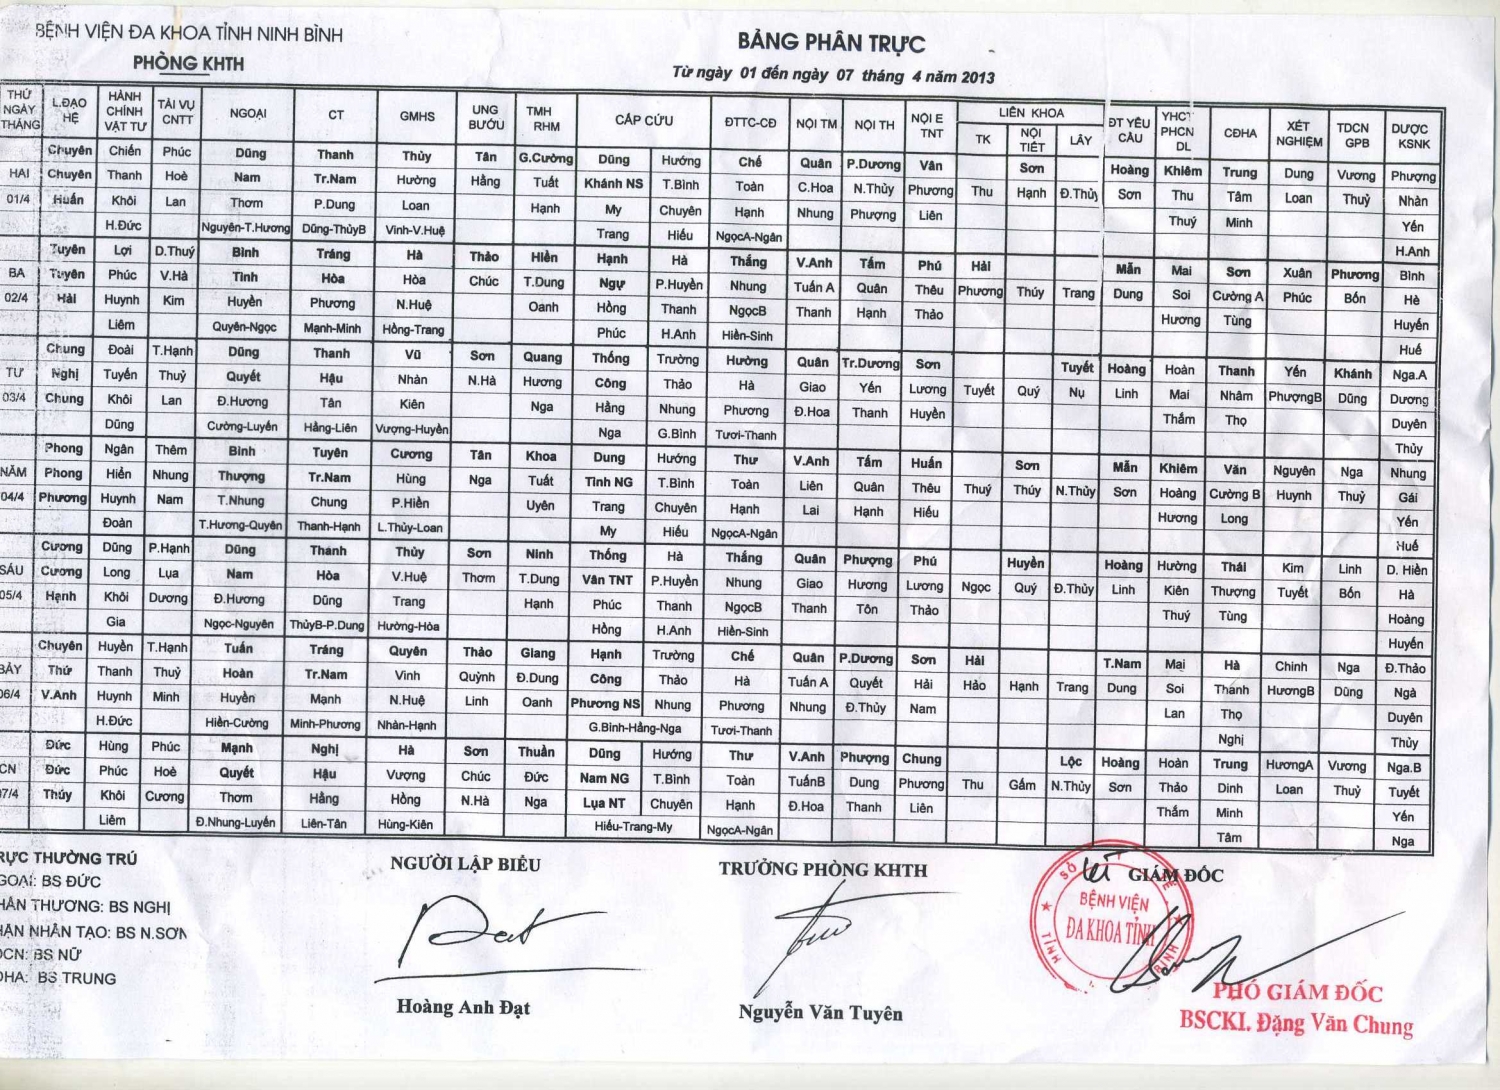 BỆNH VIỆN ĐA KHOA TỈNH NINH BÌNH
PHÒNG KHTH
BẢNG PHÂN TRỰC
Từ ngày 01 đến ngày 07 tháng 4 năm 2013
THỨ NGÀY THÁNG L.ĐẠO HỆ HÀNH CHÍNH VẬT TƯ TÀI VỤ CNTT NGOẠI CT GMHS UNG BƯỚU TMH RHM CẤP CỨU ĐTTC-CĐ NỘI TM NỘI TH NỘI E TNT LIÊN KHOA TK NỘI TIẾT LÂY ĐT YÊU CẦU YHCT PHCN DL CĐHA XÉT NGHIỆM TDCN GPB DƯỢC KSNK
Chuyên Chiến Phúc Dũng Thanh Thủy Tân G.Cường Dũng Hướng Chế Quân P.Dương Vân Sơn Hoàng Khiêm Trung Dung Vương Phượng
HAI Chuyên Thanh Hoè Nam Tr.Nam Hường Hằng Tuất Khánh NS T.Bình Toàn C.Hoa N.Thủy Phương Thu Hạnh Đ.Thủy Sơn Thu Tâm Loan Thuỷ Nhàn
01/4 Huấn Khôi Lan Thơm P.Dung Loan Hạnh My Chuyên Hạnh Nhung Phượng Liên Thuý Minh Yến
H.Đức Nguyên-T.Hương Dũng-ThủyB Vinh-V.Huệ Trang Hiếu NgọcA-Ngân H.Anh
Tuyên Lợi D.Thuý Bình Tráng Hà Thảo Hiền Hạnh Hà Thắng V.Anh Tấm Phú Hải Mẫn Mai Sơn Xuân Phương Bình
BA Tuyên Phúc V.Hà Tình Hòa Hòa Chúc T.Dung Ngự P.Huyền Nhung Tuấn A Quân Thêu Phương Thúy Trang Dung Soi Cường A Phúc Bốn Hè
02/4 Hải Huynh Kim Huyền Phương N.Huệ Oanh Hồng Thanh NgọcB Thanh Hạnh Thảo Hương Tùng Huyến
Liêm Quyên-Ngọc Mạnh-Minh Hồng-Trang Phúc H.Anh Hiền-Sinh Huế
Chung Đoài T.Hạnh Dũng Thanh Vũ Sơn Quang Thống Trường Hường Quân Tr.Dương Sơn Tuyết Hoàng Hoàn Thanh Yến Khánh Nga.A
TƯ Nghị Tuyến Thuỷ Quyết Hậu Nhàn N.Hà Hương Công Thảo Hà Giao Yến Lương Tuyết Quý Nụ Linh Mai Nhâm PhượngB Dũng Dương
03/4 Chung Khôi Lan Đ.Hương Tân Kiên Nga Hằng Nhung Phương Đ.Hoa Thanh Huyền Thắm Thọ Duyên
Dũng Cường-Luyến Hằng-Liên Vượng-Huyền Nga G.Bình Tươi-Thanh Thủy
Phong Ngân Thêm Bình Tuyên Cương Tân Khoa Dung Hướng Thư V.Anh Tấm Huấn Sơn Mẫn Khiêm Văn Nguyên Nga Nhung
NĂM Phong Hiển Nhung Thượng Tr.Nam Hùng Nga Tuất Tình NG T.Bình Toàn Liên Quân Thêu Thuý Thúy N.Thủy Sơn Hoàng Cường B Huynh Thuỷ Gái
04/4 Phương Huynh Nam T.Nhung Chung P.Hiền Uyên Trang Chuyên Hạnh Lai Hạnh Hiếu Hương Long Yến
Đoàn T.Hương-Quyên Thanh-Hạnh L.Thủy-Loan My Hiếu NgọcA-Ngân Huế
Cương Dũng P.Hạnh Dũng Thanh Thủy Sơn Ninh Thống Hà Thắng Quân Phượng Phú Huyền Hoàng Hường Thái Kim Linh D. Hiền
SÁU Cương Long Lụa Nam Hòa V.Huệ Thơm T.Dung Vân TNT P.Huyền Nhung Giao Hương Lương Ngọc Quý Đ.Thủy Linh Kiên Thượng Tuyết Bốn Hà
05/4 Hạnh Khôi Dương Đ.Hương Dũng Trang Hạnh Phúc Thanh NgọcB Thanh Tôn Thảo Thuý Tùng Hoàng
Gia Ngọc-Nguyên ThủyB-P.Dung Hường-Hòa Hồng H.Anh Hiền-Sinh Huyến
Chuyên Huyền T.Hạnh Tuấn Tráng Quyên Thảo Giang Hạnh Trường Chế Quân P.Dương Sơn Hải T.Nam Mai Hà Chinh Nga Đ.Thảo
BẢY Thứ Thanh Thuỷ Hoàn Tr.Nam Vinh Quỳnh Đ.Dung Công Thảo Hà Tuấn A Quyết Hải Hảo Hạnh Trang Dung Soi Thanh HươngB Dũng Ngà
06/4 V.Anh Huynh Minh Huyền Mạnh N.Huệ Linh Oanh Phương NS Nhung Phương Nhung Đ.Thủy Nam Lan Thọ Duyên
H.Đức Hiền-Cường Minh-Phương Nhàn-Hạnh G.Bình-Hằng-Nga Tươi-Thanh Nghị Thủy
Đức Hùng Phúc Mạnh Nghị Hà Sơn Thuần Dũng Hướng Thư V.Anh Phượng Chung Lộc Hoàng Hoàn Trung HươngA Vương Nga.B
CN Đức Phúc Hoè Quyết Hậu Vượng Chúc Đức Nam NG T.Bình Toàn TuấnB Dung Phương Thu Gấm N.Thủy Sơn Thảo Dinh Loan Thuỷ Tuyết
7/4 Thúy Khôi Cương Thơm Hằng Hồng N.Hà Nga Lụa NT Chuyên Hạnh Đ.Hoa Thanh Liên Thắm Minh Yến
Liêm Đ.Nhung-Luyến Liên-Tân Hùng-Kiên Hiếu-Trang-My NgọcA-Ngân Tâm Nga
RỰC THƯỜNG TRÚ
GOẠI: BS ĐỨC
HẤN THƯƠNG: BS NGHỊ
HẬN NHÂN TẠO: BS N.SƠN
DCN: BS NỮ
DHA: BS TRUNG
NGƯỜI LẬP BIỂU
Hoàng Anh Đạt
TRƯỞNG PHÒNG KHTH
Nguyễn Văn Tuyên
GIÁM ĐỐC
BỆNH VIỆN
ĐA KHOA TỈNH
PHÓ GIÁM ĐỐC
BSCKI. Đặng Văn Chung